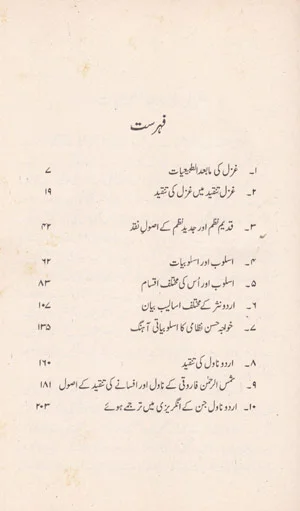 فہرست
۱۔ غزل کی مابعد الطبیعیات ۷
۲۔ غزل تنقید میں غزل کی تنقید ۱۹
۳۔ قدیم نظم اور جدید نظم کے اصولِ نقد ۴۲
۴۔ اسلوب اور اسلوبیات ۶۲
۵۔ اسلوب اور اُس کی مختلف اقسام ۸۳
۶۔ اردو نثر کے مختلف اسالیب بیان ۱۰۷
۷۔ خواجہ حسن نظامی کا اسلوبیاتی آہنگ ۱۳۵
۸۔ اردو ناول کی تنقید ۱۶۰
۹۔ شمس الرحمٰن فاروقی کے ناول اور افسانے کی تنقید کے اصول ۱۸۱
۱۰۔ اردو ناول جن کے انگریزی میں ترجمے ہوئے ۲۰۳